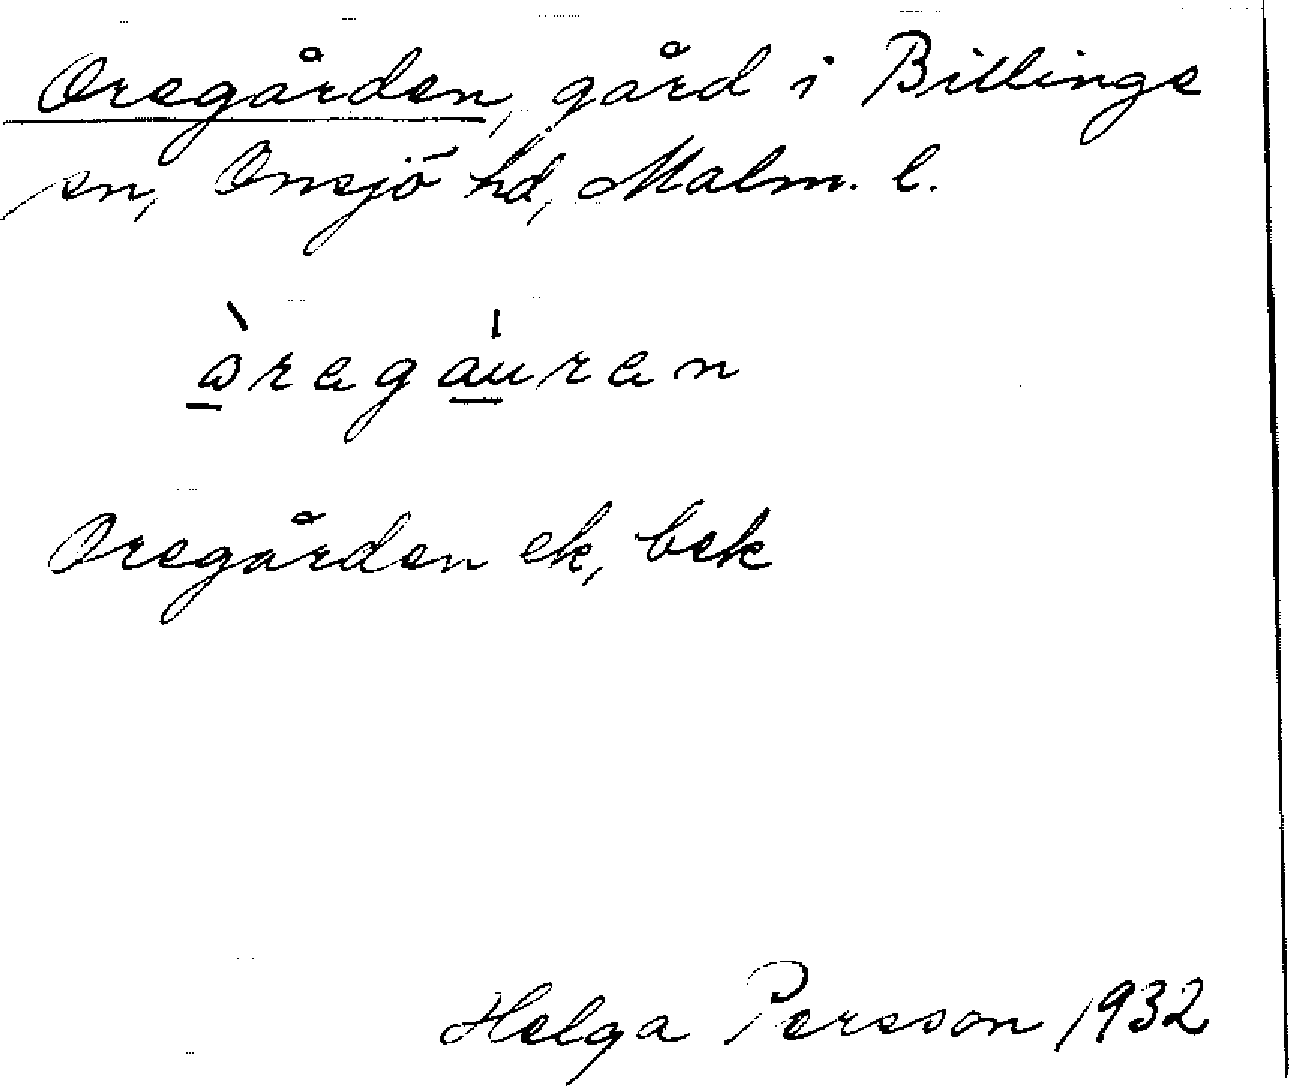 Oregården, gård i Billinge
sn, Onsjö hd, Malm. l.
àragáuran
Oregården ek, bek
Helga Persson 1932